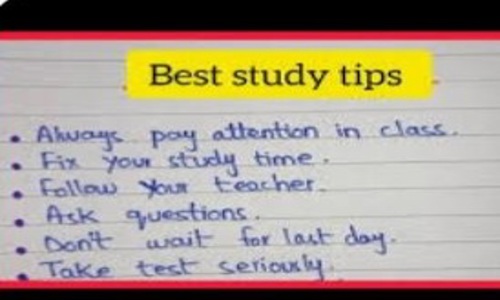 Best study tips
• Always pay attention in class.
• Fix your study time.
• Follow your teacher.
• Ask questions.
• Don't wait for last day.
• Take test seriously.